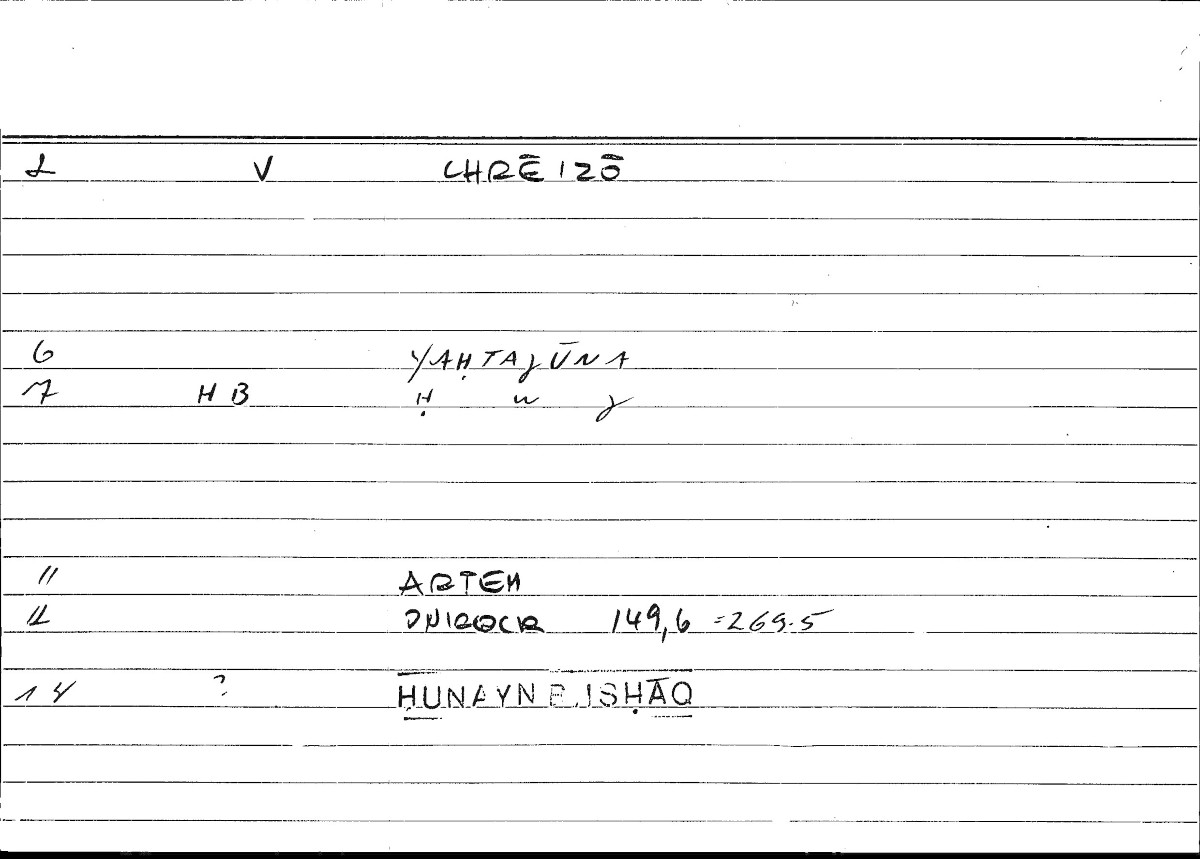 1 V CHRĒIZŌ
6 YAḤTAJŪNA
7 HB Ḥ w j
11 ARTEM
12 ONIROCR 149,6 =269.5
14 ? ḤUNAYN B. ISḤĀQ